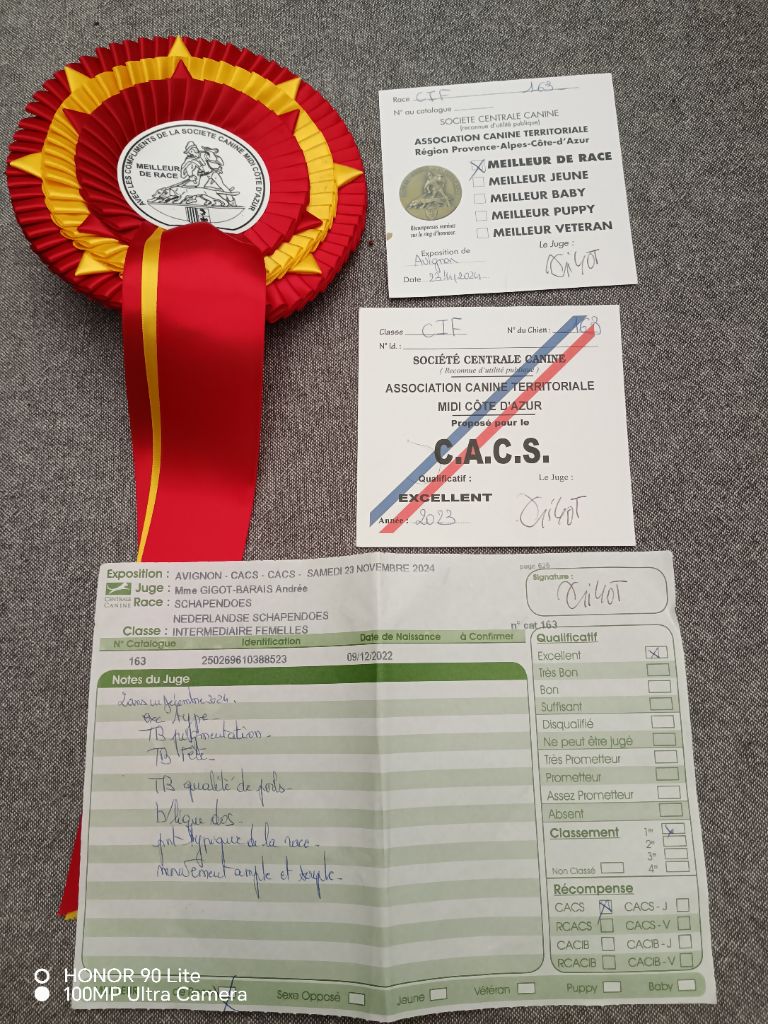 AVEC LES COMPLIMENTS DE LA SOCIETE CANINE MIDI CÔTE D'AZUR
MEILLEUR
DE RACE
Race CIF 163
N° au catalogue
SOCIETE CENTRALE CANINE
(reconnue d'utilité publique)
ASSOCIATION CANINE TERRITORIALE
Région Provence-Alpes-Côte-d'Azur
MEILLEUR DE RACE
MEILLEUR JEUNE
MEILLEUR BABY
MEILLEUR PUPPY
MEILLEUR VETERAN
Récompenses remises
sur le ring d'honneur
Exposition de
Avignon
Le Juge :
Gigot
Date 23/11/2024
Classe CIF N° du Chien : 163
N° Id. :
SOCIÉTÉ CENTRALE CANINE
( Reconnue d'utilité publique )
ASSOCIATION CANINE TERRITORIALE
MIDI CÔTE D'AZUR
Proposé pour le
C.A.C.S.
Qualificatif : Le Juge :
EXCELLENT
Gigot
Année : 2023
Exposition : AVIGNON - CACS - CACS - SAMEDI 23 NOVEMBRE 2024
page 626
CENTRALE
CANINE
Juge : Mme GIGOT-BARAIS Andrée
Signature :
Gigot
Race : SCHAPENDOES
NEDERLANDSE SCHAPENDOES
Classe : INTERMEDIAIRE FEMELLES
n° cat 163
N° Catalogue Identification Date de Naissance à Confirmer
163 250269610388523 09/12/2022
Notes du Juge
2 ans en décembre 2024.
exc type.
TB pigmentation.
TB Tête.
TB qualité de poils.
b ligne dos.
typique de la race.
mouvement ample et souple.
Qualificatif
Excellent
Très Bon
Bon
Suffisant
Disqualifié
Ne peut être jugé
Très Prometteur
Prometteur
Assez Prometteur
Absent
Classement 1er
2e
3e
Non Classé 4e
Récompense
CACS CACS - J
RCACS CACS - V
CACIB CACIB - J
RCACIB CACIB - V
Sexe Opposé Jeune Vétéran Puppy Baby
HONOR 90 Lite
100MP Ultra Camera